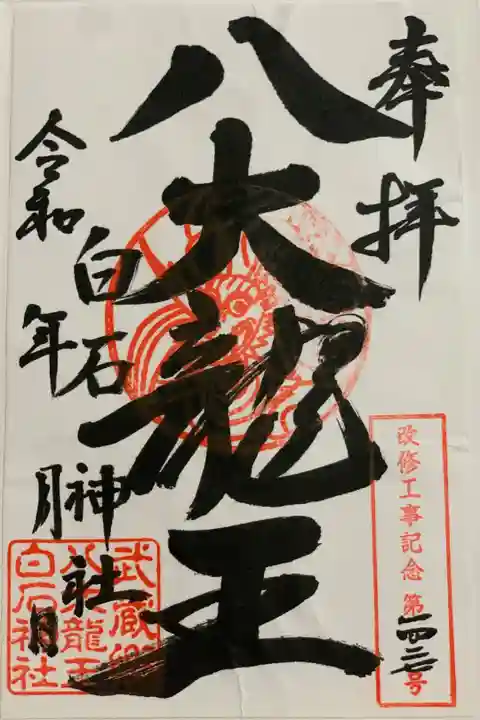 奉拝
八大龍王
白石神社
令和 年 月 日
改修工事記念 第一四三号
武蔵国
八大龍王
白石神社